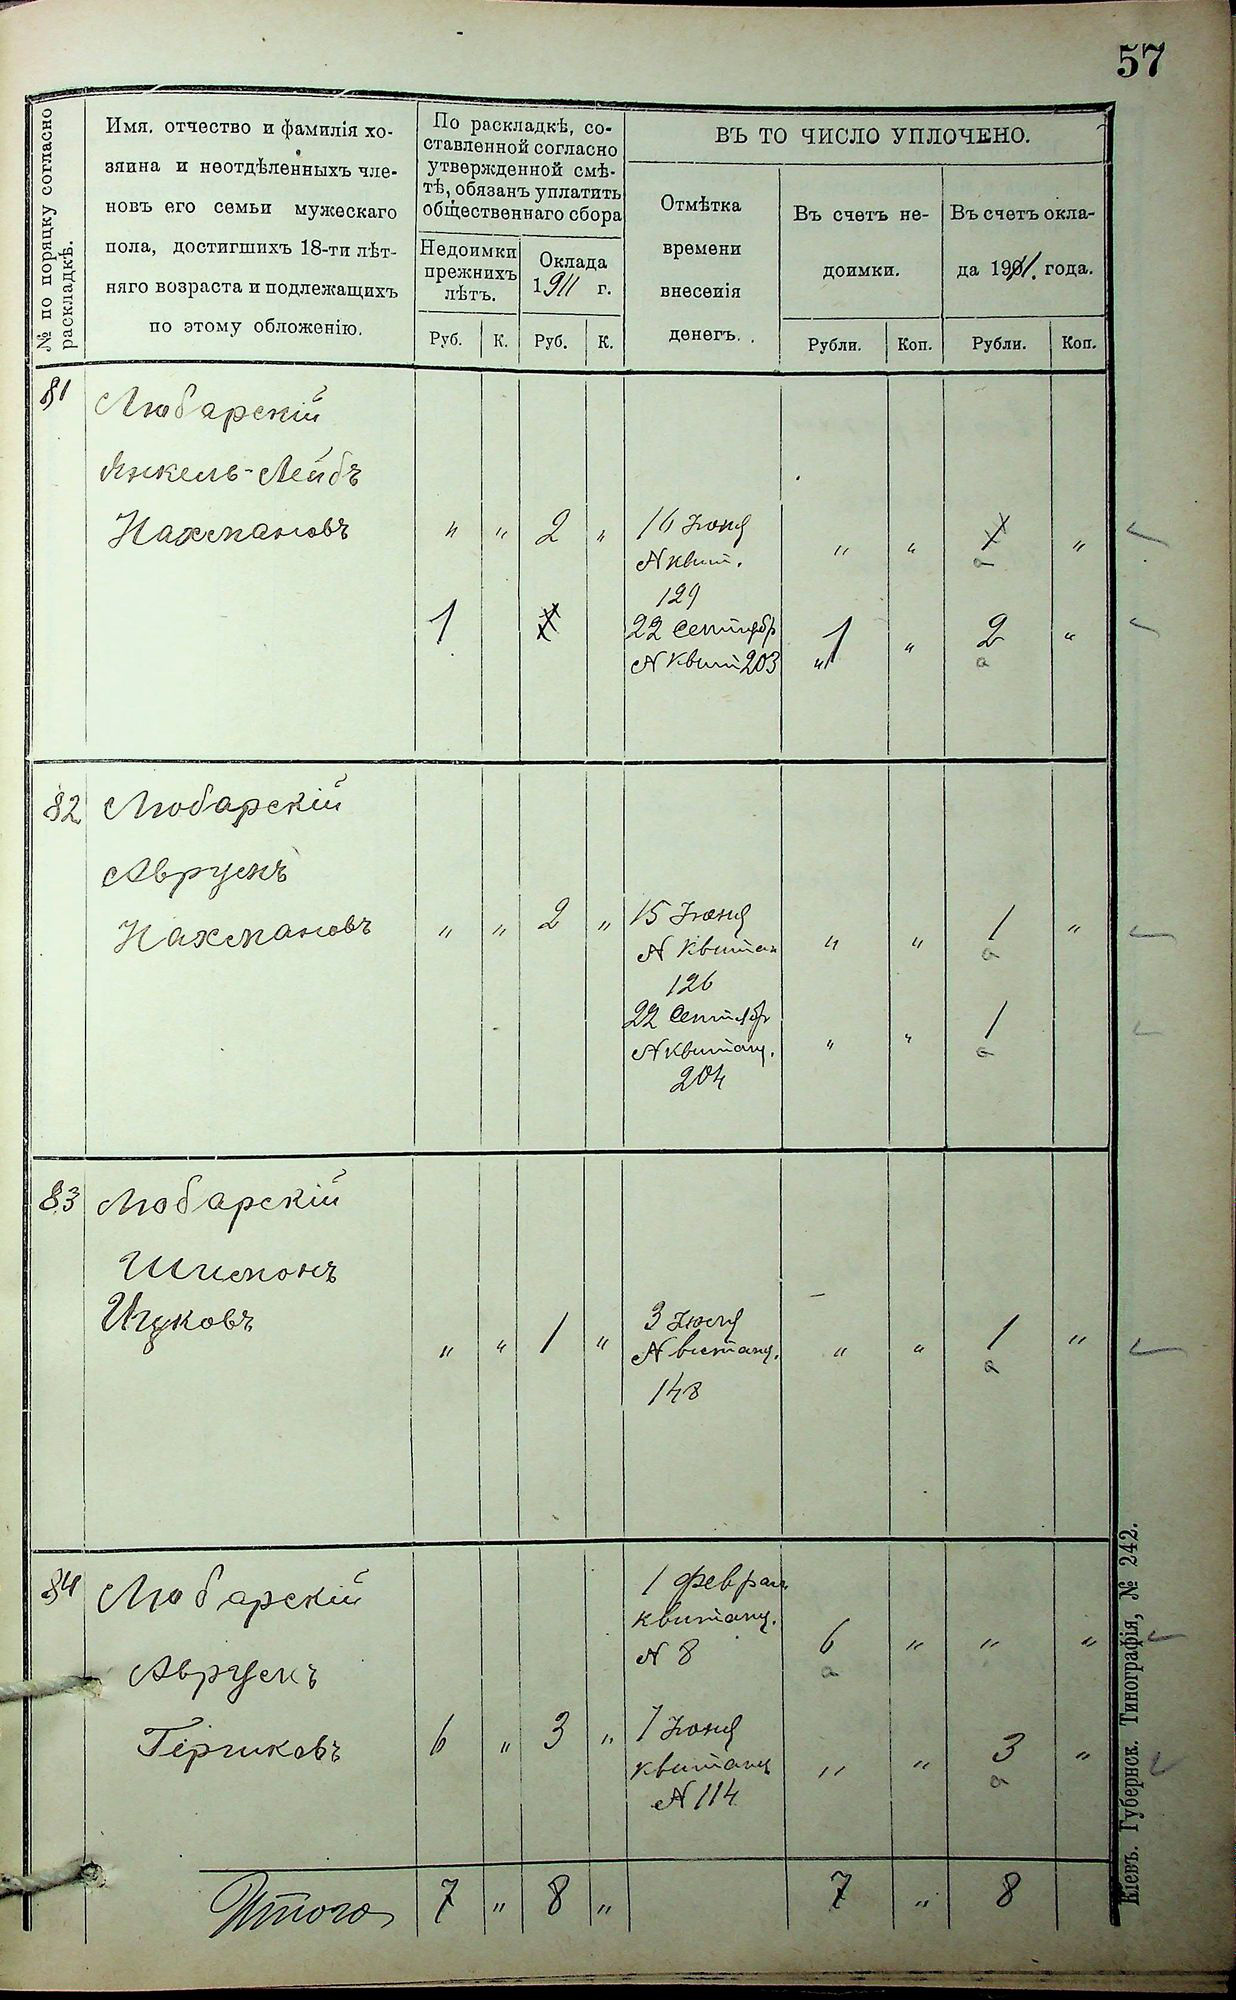 57
№ по порядку согласно
раскладкѣ.
Имя, отчество и фамилія хо-
зяина и неотдѣленныхъ чле-
новъ его семьи мужескаго
пола, достигшихъ 18-ти лѣт-
няго возраста и подлежащихъ
по этому обложенію.
По раскладкѣ, со-
ставленной согласно
утвержденной смѣ-
тѣ, обязанъ уплатить
общественнаго сбора
Недоимки
прежнихъ
лѣтъ.
Оклада
1911 г.
Руб. К. Руб. К.
ВЪ ТО ЧИСЛО УПЛОЧЕНО.
Отмѣтка
времени
внесенія
денегъ.
Въ счетъ не-
доимки.
Въ счетъ окла-
да 1911. года.
Рубли. Коп. Рубли. Коп.
81 Любарскій
Янкель-Лейбъ
Нахмановъ " " 2 " 16 Іюня " " "
N квит.
129
1 22 Сентябр 1 " 2 "
N Квит 203 "
82 Любарскій
Аврумъ
Нахмановъ " " 2 " 15 Іюня " " 1 "
N Квитан
126
22 Сентябр " " 1
N квитанц.
204
83 Любарскій
Шимонъ
Ицковъ " " 1 " 3 " " 1 "
148
84 Любарскій 1 Феврал
квитанц.
N 8 6 " " "
Аврумъ
6 " 3 " 7 Іюня " " 3 "
квитанц
N 114
Итого 7 " 8 " 7 " 8
Кіевъ. Губернск. Типографія, № 242.